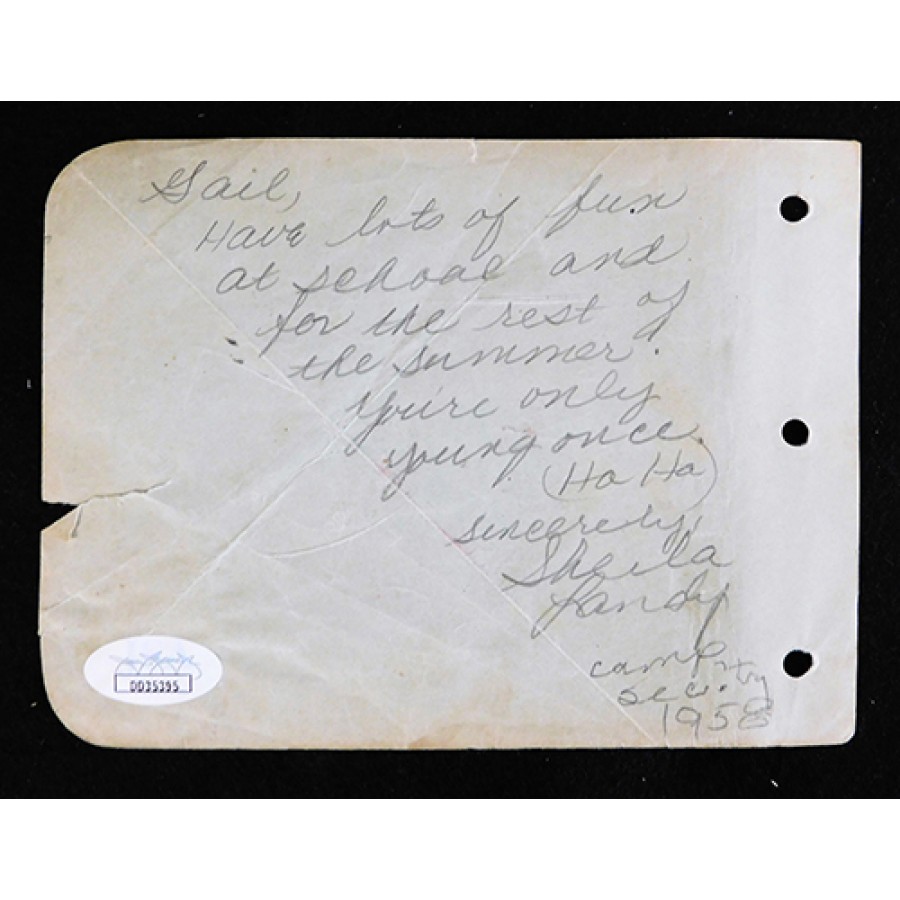 Gail,
Have lots of fun
at school and
for the rest of
the summer.
You're only
young once.
(Ha Ha)
Sincerely,
Sheila
Landy
camp
sec.
1958
DD35395